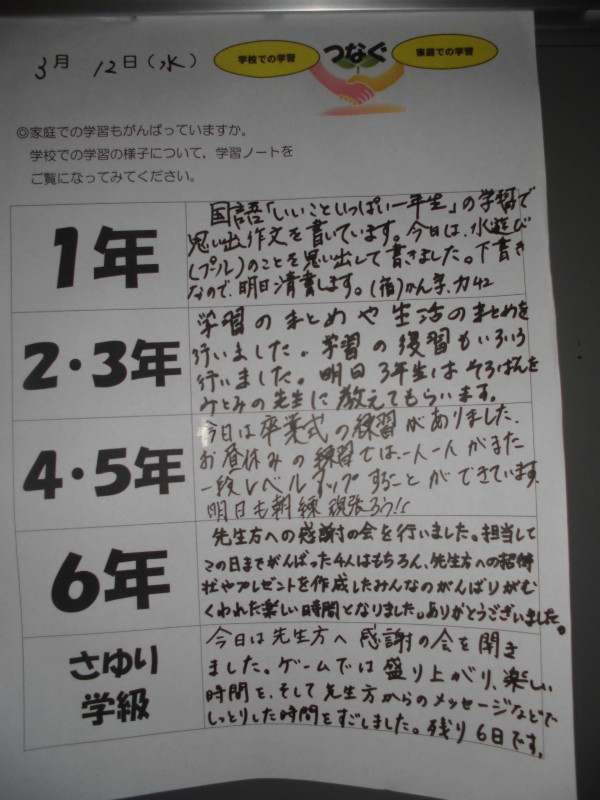 3月 12日(水)
学校での学習
つなぐ
家庭での学習
◎家庭での学習もがんばっていますか。
学校での学習の様子について，学習ノートを
ご覧になってみてください。
1年
国語「いいこといっぱい一年生」の学習で
思い出作文を書いています。今日は、水遊び
(プール)のことを思い出して書きました。下書き
なので、明日清書します。(宿)かん字、力42
2・3年
学習のまとめや生活のまとめを
行いました。学習の復習もいろいろ
行いました。明日3年生はそろばんを
みとみの先生に教えてもらいます。
4・5年
今日は卒業式の練習がありました。
お昼休みの練習では、一人一人がまた
一段レベルアップすることができています。
明日も朝練頑張ろう!!
6年
先生方への感謝の会を行いました。担当して
この日までがんばった4人はもちろん、先生方への招待
状やプレゼントを作成したみんなのがんばりがむ
くわれた楽しい時間となりました。ありがとうございました。
さゆり
学級
今日は先生方へ感謝の会を開き
ました。ゲームでは盛り上がり、楽しい
時間を、そして先生方からのメッセージなどで
しっとりした時間をすごしました。残り6日です。